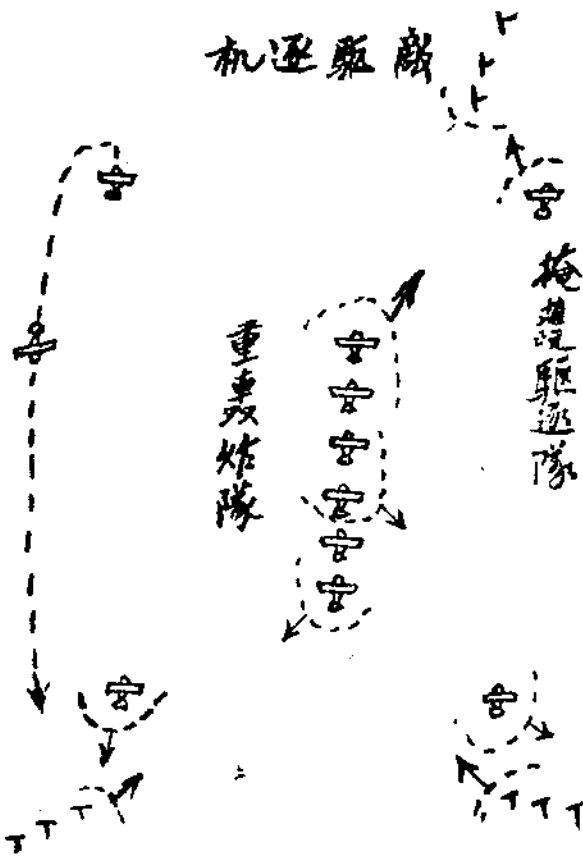 敵驅逐机
掩護驅逐隊
重轟炸隊